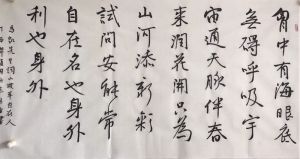 胃中有海眼底
無碍呼吸宇
宙通天脉伴春
来潤花開只為
山河添新彩
試问安能带
自在名也身外
利也身外